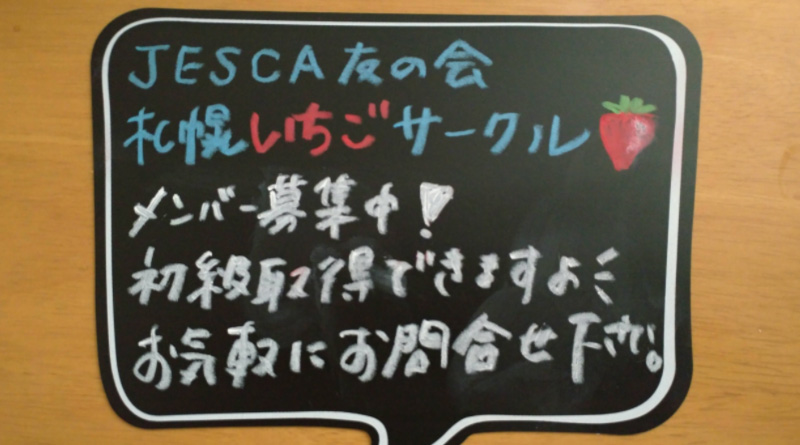 JESCA友の会
札幌いちごサークル
メンバー募集中!
初級取得できますよミ
お気軽にお問合せ下さい。